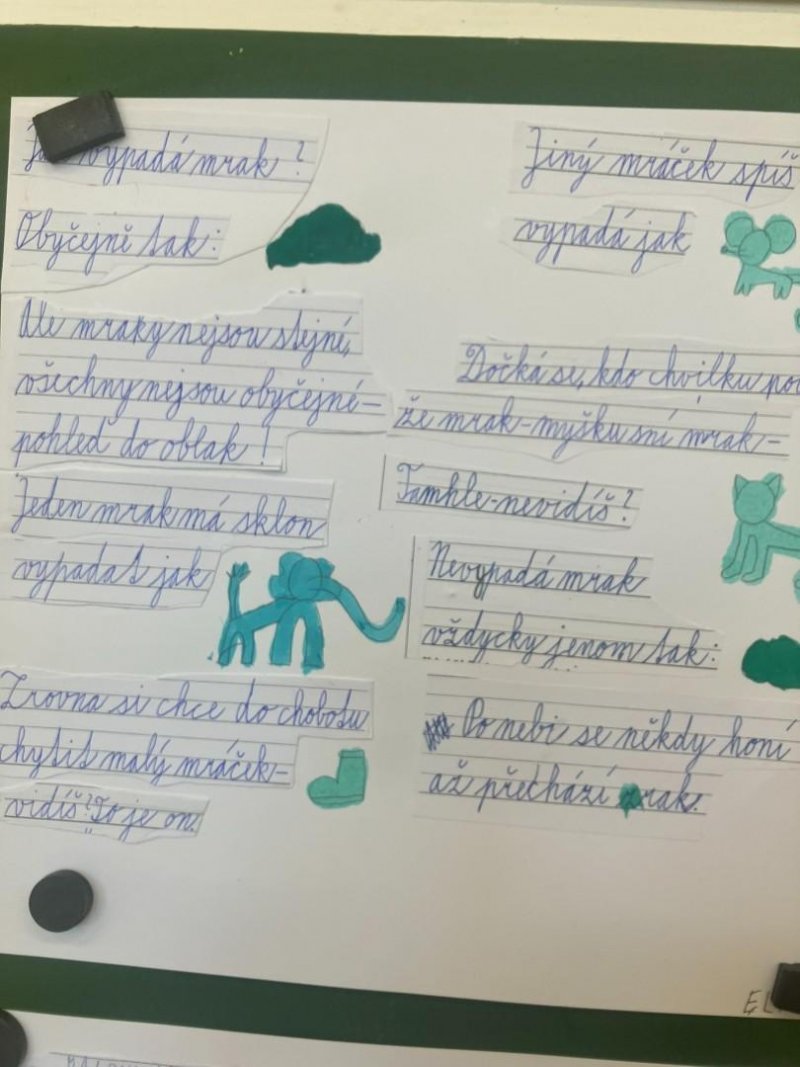 vypadá mrak ?
Obyčejně tak :
Ale mraky nejsou stejné,
všechny nejsou obyčejné –
pohleď do oblak !
Jeden mrak má sklon
vypadat jak
Zrovna si chce do chobotu
chytit malý mráček –
vidíš? To je on.
Jiný mráček spíš
vypadá jak
Dočká se, kdo chvilku
že mrak – myšku sní mrak –
Tamhle – nevidíš ?
Nevypadá mrak
vždycky jenom tak :
Po nebi se někdy honí
až přechází zrak.